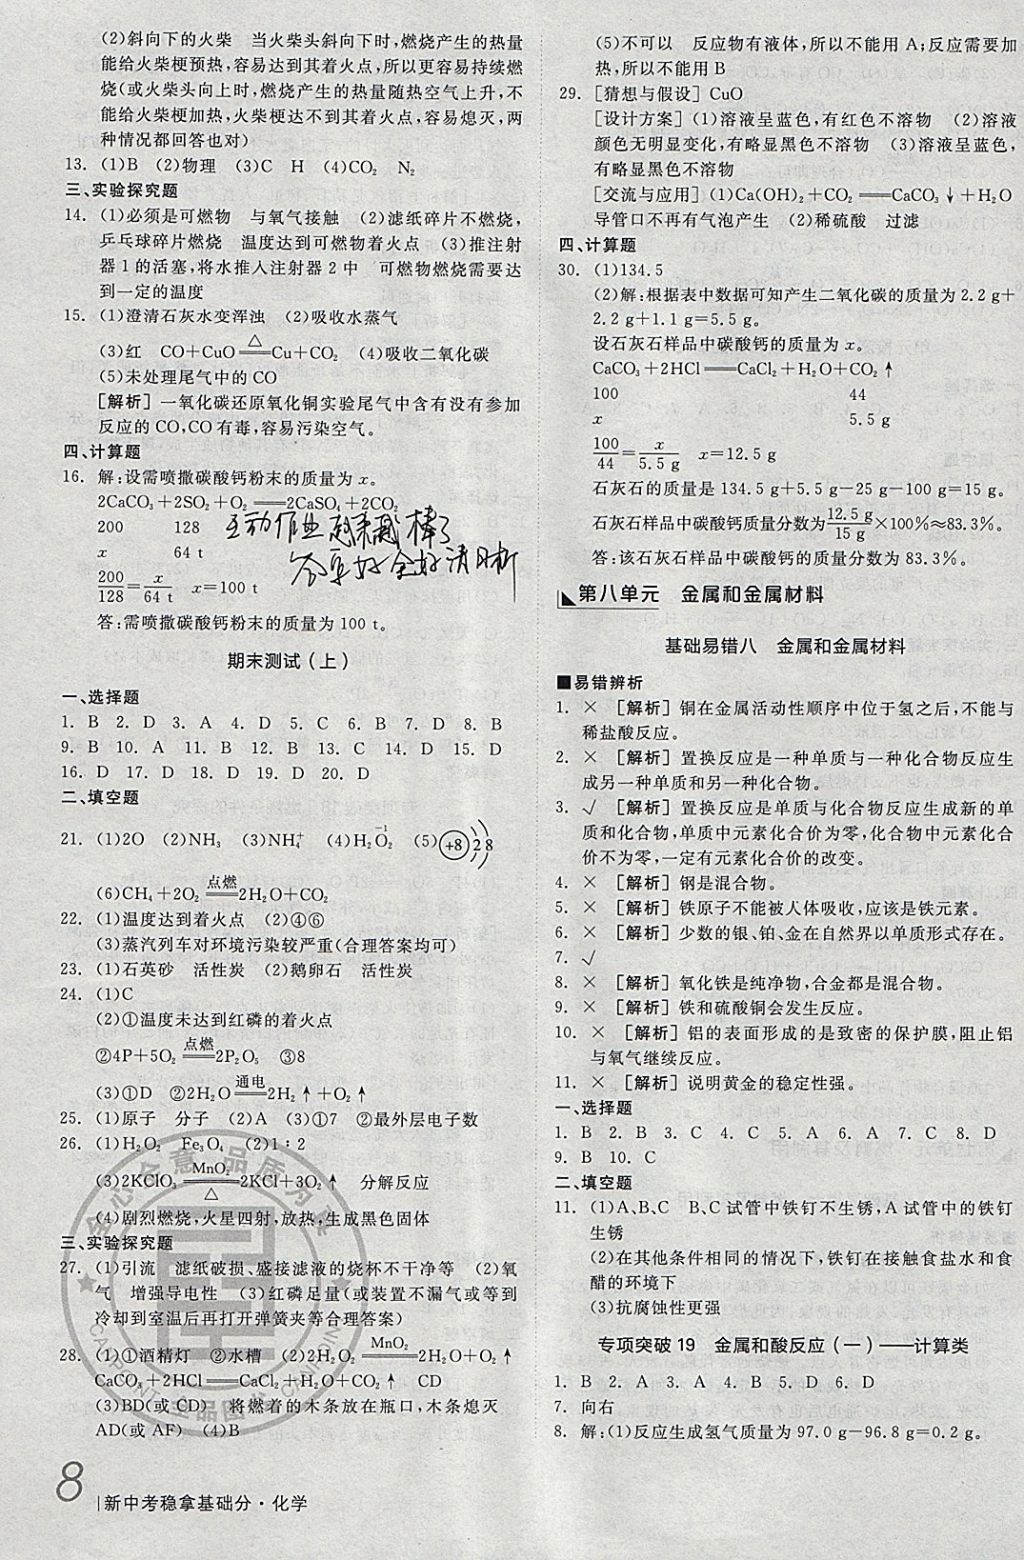 (2)斜向下的火柴　当火柴头斜向下时,燃烧产生的热量
能给火柴梗预热,容易达到其着火点,所以能够持续燃
烧(或火柴头向上时,燃烧产生的热量随热空气上升,不
能给火柴梗加热,火柴梗达不到其着火点,容易熄灭,两
种情况都回答也对)
13. (1)B　(2)物理　(3)C　H　(4)CO₂　N₂
三、实验探究题
14. (1)必须是可燃物　与氧气接触　(2)滤纸碎片不燃烧,
乒乓球碎片燃烧　温度达到可燃物着火点　(3)推注射
器1的活塞,将水推人注射器2中　可燃物燃烧需要达
到一定的温度
15. (1)澄清石灰水变浑浊　(2)吸收水蒸气
(3)红　CO+CuO══△══Cu+CO₂　(4)吸收二氧化碳
(5)未处理尾气中的CO
[解析] 一氧化碳还原氧化铜实验尾气中含有没有参加
反应的CO,CO有毒,容易污染空气。
四、计算题
16. 解:设需喷撒碳酸钙粉末的质量为x。
2CaCO₃+2SO₂+O₂══2CaSO₄+2CO₂
200　128
x　64 t
200/128=x/64 t　x=100 t
答:需喷撒碳酸钙粉末的质量为100 t。
期末测试(上)
一、选择题
1. B　2. D　3. A　4. D　5. C　6. B　7. D　8. B
9. B　10. A　11. B　12. B　13. C　14. D　15. D
16. D　17. D　18. D　19. D　20. D
二、填空题
21. (1)2O　(2)NH₃　(3)NH₄⁺　(4)H₂O₂ -1　(5) +8 2 8
(6)CH₄+2O₂══点燃══2H₂O+CO₂
22. (1)温度达到着火点　(2)④⑥
(3)蒸汽列车对环境污染较严重(合理答案均可)
23. (1)石英砂　活性炭　(2)鹅卵石　活性炭
24. (1)C
(2)①温度未达到红磷的着火点
②4P+5O₂══点燃══2P₂O₅　③8
(3)①D　②2H₂O══通电══2H₂↑+O₂↑
25. (1)原子　分子　(2)A　(3)①7　②最外层电子数
26. (1)H₂O₂　Fe₃O₄　(2)1∶2
(3)2KClO₃══MnO₂ △══2KCl+3O₂↑　分解反应
(4)剧烈燃烧,火星四射,放热,生成黑色固体
三、实验探究题
27. (1)引流　滤纸破损、盛接滤液的烧杯不干净等　(2)氧
气　增强导电性　(3)红磷足量(或装置不漏气或等到
冷却到室温后再打开弹簧夹等合理答案)
28. (1)①酒精灯　②水槽　(2)2H₂O₂══MnO₂══2H₂O+O₂↑
CaCO₃+2HCl══CaCl₂+H₂O+CO₂↑　CD
(3)BD(或CD)　将燃着的木条放在瓶口,木条熄灭
AD(或AF)　(4)B
8
新中考稳拿基础分·化学
(5)不可以　反应物有液体,所以不能用A;反应需要加
热,所以不能用B
29. [猜想与假设] CuO
[设计方案] (1)溶液呈蓝色,有红色不溶物　(2)溶液
颜色无明显变化,有略显黑色不溶物　(3)溶液呈蓝色,
有略显黑色不溶物
[交流与应用] (1)Ca(OH)₂+CO₂══CaCO₃↓+H₂O
导管口不再有气泡产生　(2)稀硫酸　过滤
四、计算题
30. (1)134.5
(2)解:根据表中数据可知产生二氧化碳的质量为2.2 g+
2.2 g+1.1 g=5.5 g。
设石灰石样品中碳酸钙的质量为x。
CaCO₃+2HCl══CaCl₂+H₂O+CO₂↑
100　44
x　5.5 g
100/44=x/5.5 g　x=12.5 g
石灰石的质量是134.5 g+5.5 g-25 g-100 g=15 g。
石灰石样品中碳酸钙质量分数为12.5 g/15 g×100%≈83.3%。
答:该石灰石样品中碳酸钙的质量分数为83.3%。
第八单元　金属和金属材料
基础易错八　金属和金属材料
■易错辨析
1. ×　[解析] 铜在金属活动性顺序中位于氢之后,不能与
稀盐酸反应。
2. ×　[解析] 置换反应是一种单质与一种化合物反应生
成另一种单质和另一种化合物。
3. √　[解析] 置换反应是单质与化合物反应生成新的单
质和化合物,单质中元素化合价为零,化合物中元素化合
价不为零,一定有元素化合价的改变。
4. ×　[解析] 钢是混合物。
5. ×　[解析] 铁原子不能被人体吸收,应该是铁元素。
6. ×　[解析] 少数的银、铂、金在自然界以单质形式存在。
7. √
8. ×　[解析] 氧化铁是纯净物,合金都是混合物。
9. ×　[解析] 铁和硫酸铜会发生反应。
10. ×　[解析] 铝的表面形成的是致密的保护膜,阻止铝
与氧气继续反应。
11. ×　[解析] 说明黄金的稳定性强。
一、选择题
1. B　2. B　3. C　4. C　5. A　6. A　7. C　8. D
9. B　10. C
二、填空题
11. (1)A、B、C　B、C试管中铁钉不生锈,A试管中的铁钉
生锈
(2)在其他条件相同的情况下,铁钉在接触食盐水和食
醋的环境下
(3)抗腐蚀性更强
专项突破19　金属和酸反应(一)——计算类
1. B　2. A　3. A　4. B　5. D　6. D
7. 向右
8. 解:(1)反应生成氢气质量为97.0 g-96.8 g=0.2 g。